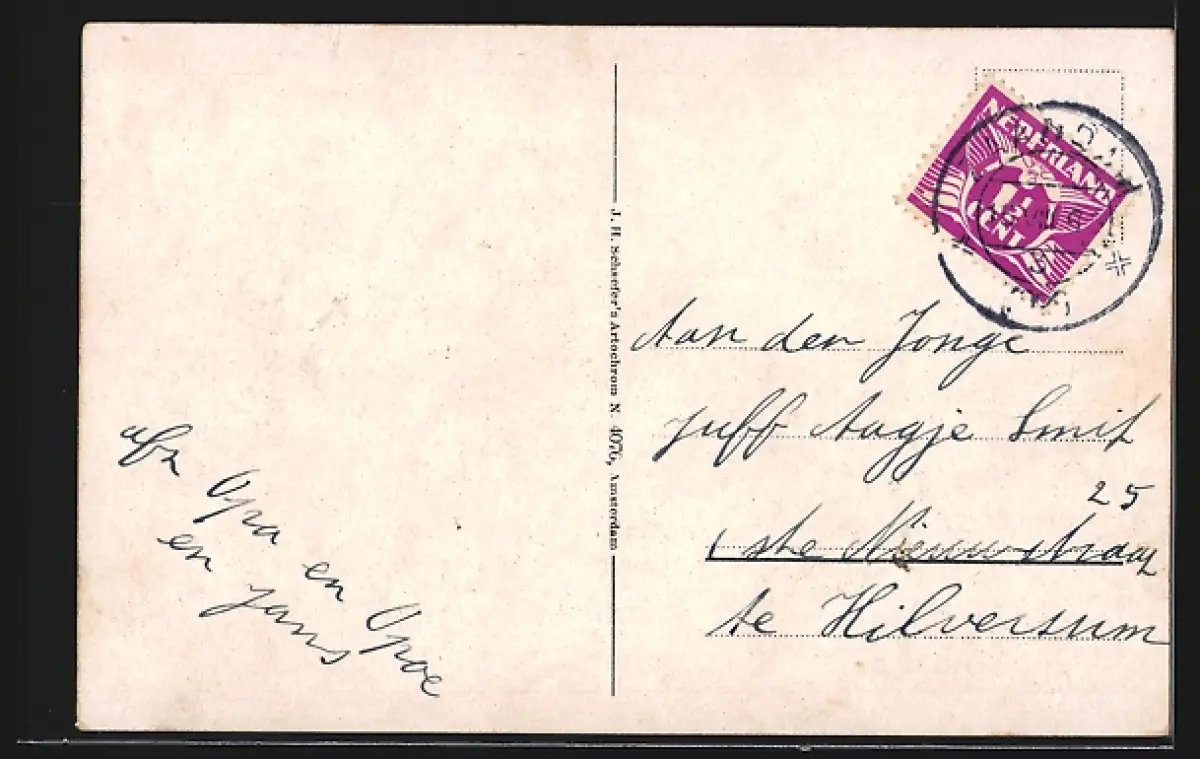 afz
Opa en Opoe
en Jans
J. H. Schaefer's Artochrom N. 4076, Amsterdam
NEDERLAND
1½
CENT
Aan den Jonge
Juff Aagje Smit
25
1 ste Nieuwstraat
te Hilversum